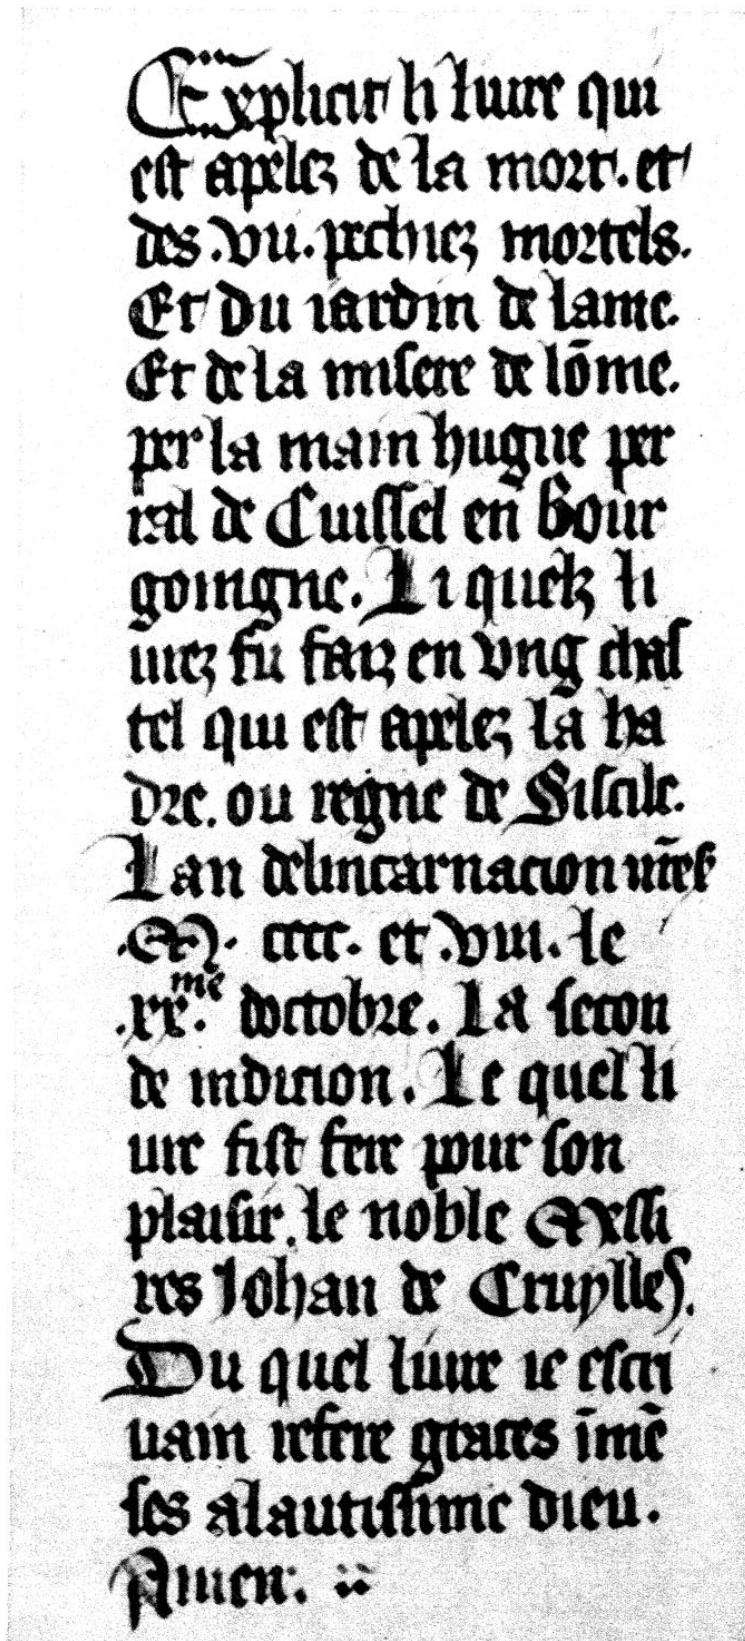 Explicit li liure qui
est apelez de la mort. et
des .vii. pechiez mortels.
Et du iardin de lame.
Et de la misere de lōme.
per la main hugue per
ral de Cuissel en Bour
goingne. Li quelz li
urez fu faiz en vng chas
tel qui est apelez la ha
dre. ou regne de Siscile.
Lan delincarnacion
.M. cccc. et .viii. le
.xx.me doctobre. La secon
de indicion. Le quel li
ure fist fere pour son
plaisir. le noble Messi
res Iohan de Cruylles.
Du quel liure ie escri
uain refere graces īmē
ses alautissime dieu.
Amen.